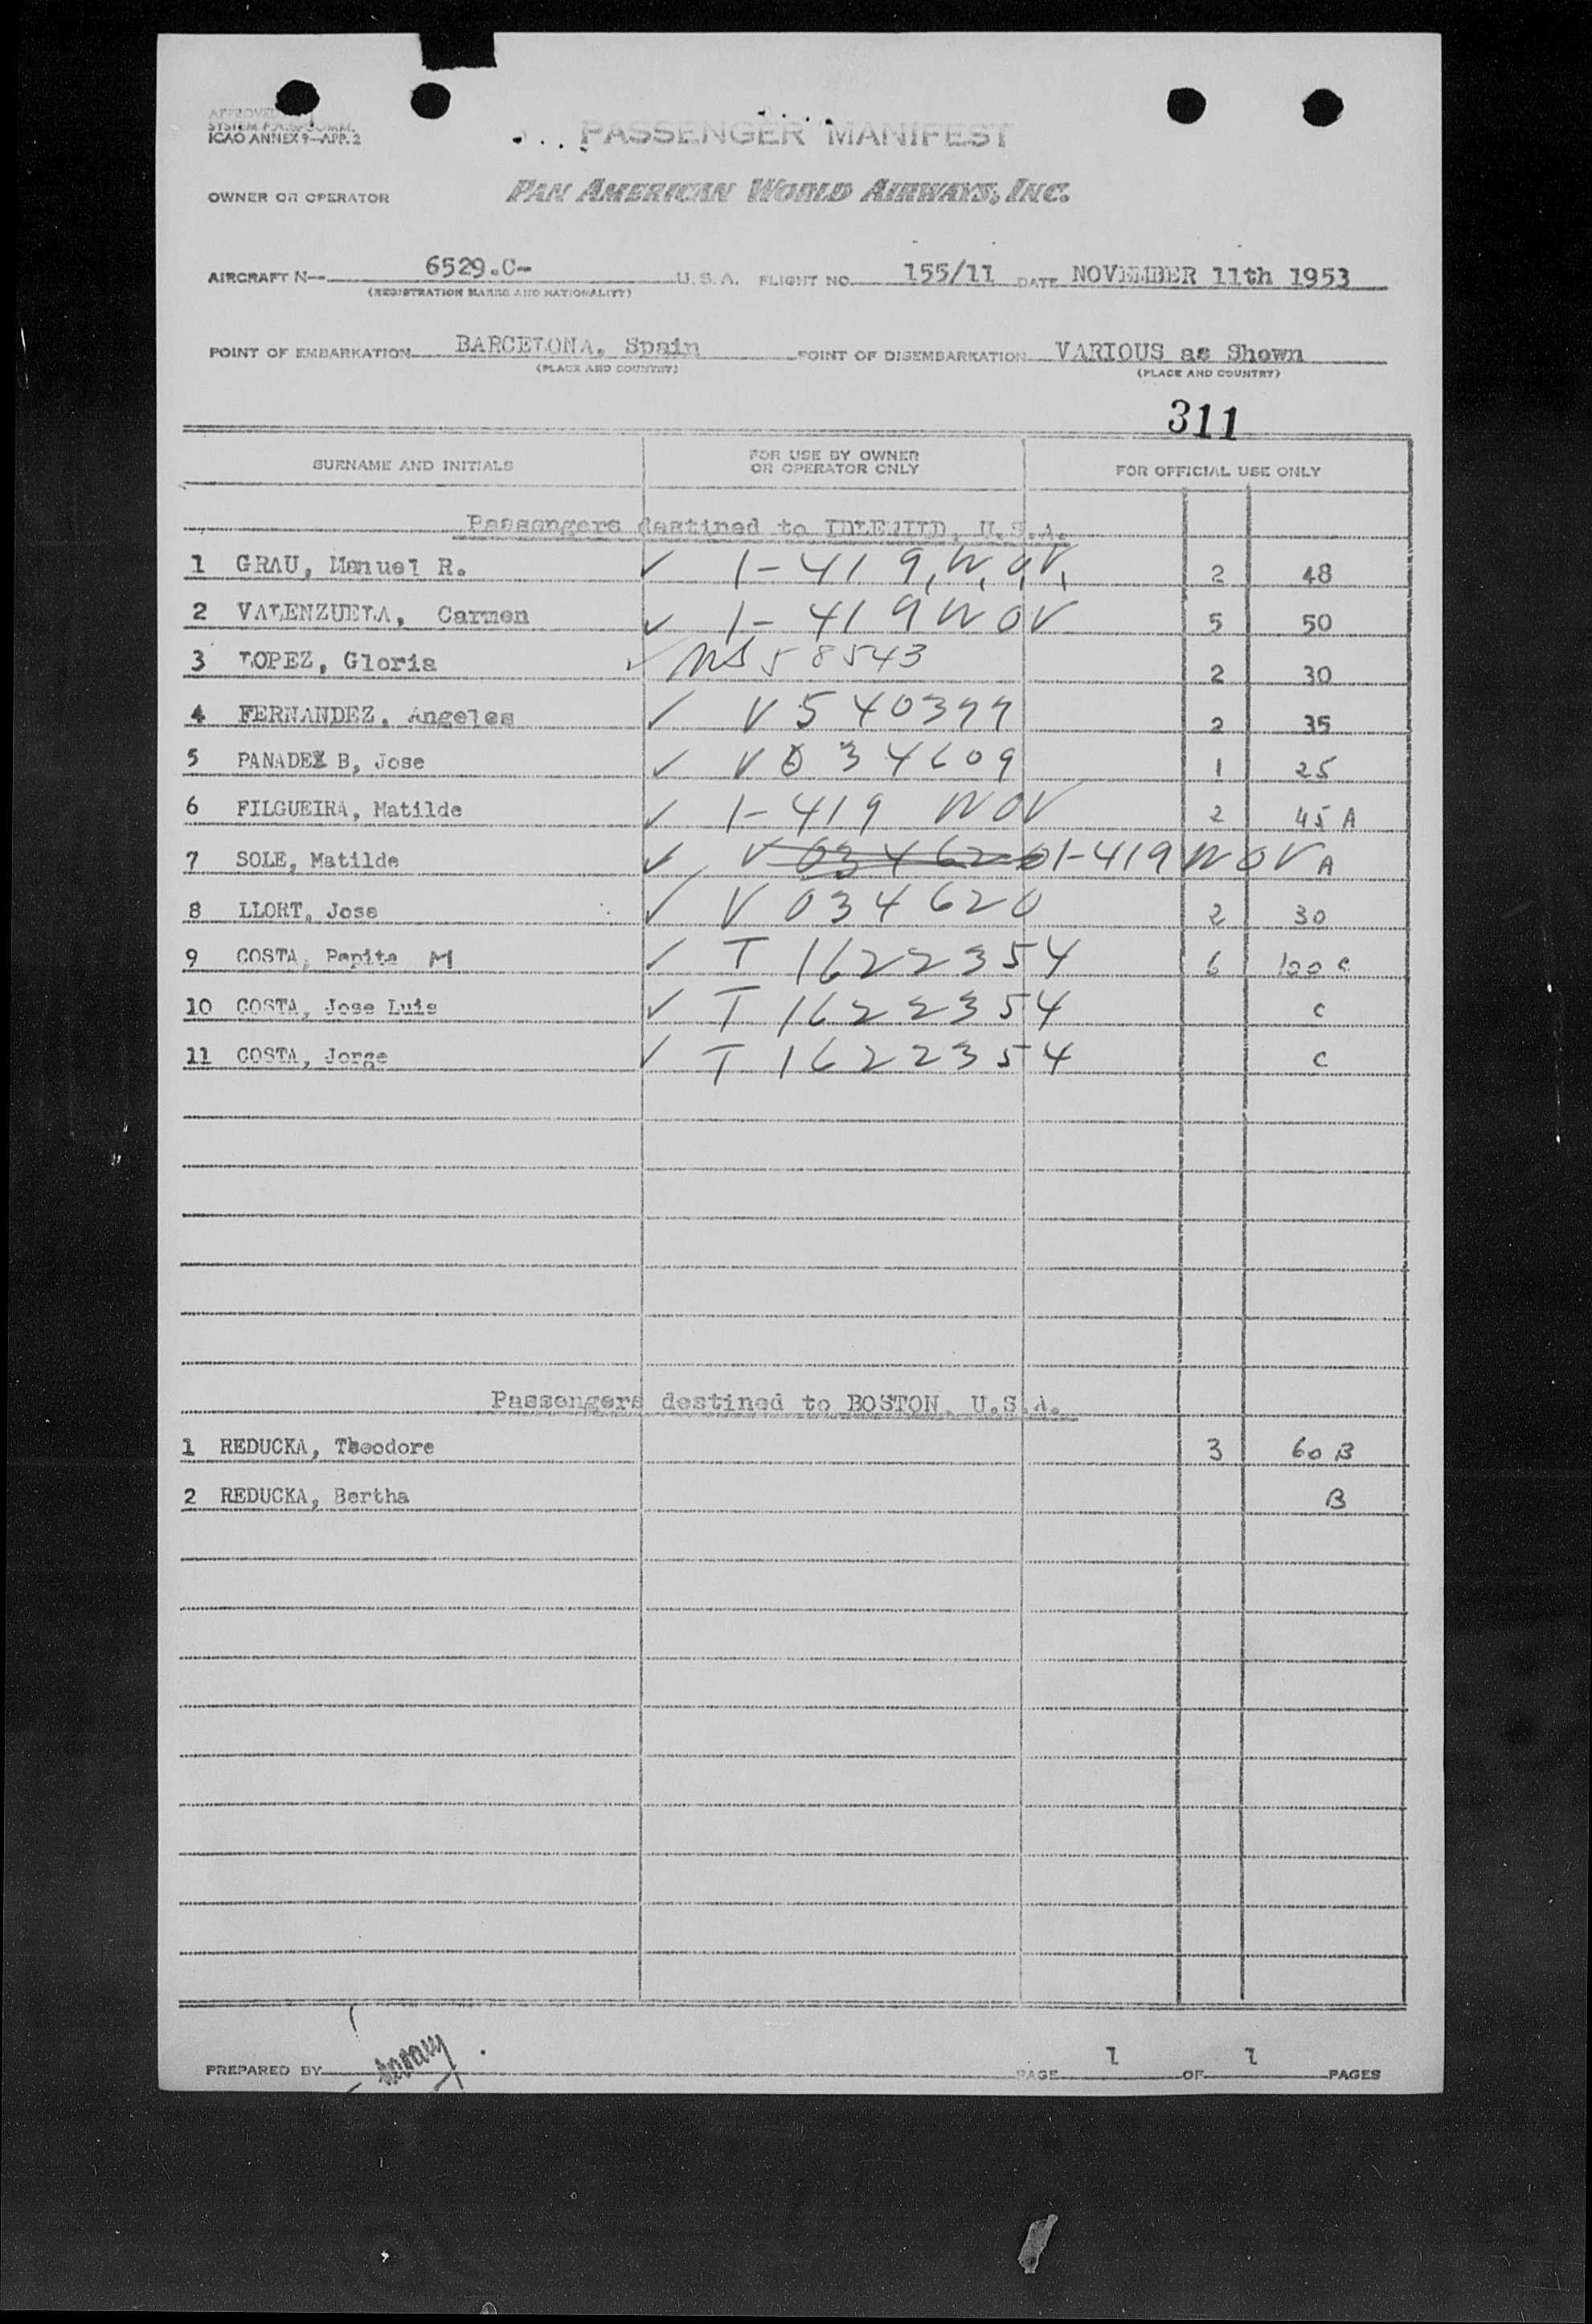 APPROVED
SYSTEM
ICAO ANNEX 9-APP. 2
PASSENGER MANIFEST
OWNER OR OPERATOR PAN AMERICAN WORLD AIRWAYS, INC.
AIRCRAFT N-- 6529.C- U.S.A. FLIGHT NO. 155/11 DATE NOVEMBER 11th 1953
(REGISTRATION MARKS AND NATIONALITY)
POINT OF EMBARKATION BARCELONA, Spain POINT OF DISEMBARKATION VARIOUS as Shown
(PLACE AND COUNTRY) (PLACE AND COUNTRY)
311
SURNAME AND INITIALS FOR USE BY OWNER OR OPERATOR ONLY FOR OFFICIAL USE ONLY
Passengers destined to IDLEWILD, U.S.A.
1 GRAU, Manuel R. ✓ 1-419, W, O, V, 2 48
2 VALENZUELA, Carmen ✓ 1-419 W O V 5 50
3 LOPEZ, Gloria ✓ 58543 2 30
4 FERNANDEZ, Angeles ✓ V 540399 2 35
5 PANADEX B, Jose ✓ V 034609 1 25
6 FILGUEIRA, Matilde ✓ 1-419 WOV 2 45 A
7 SOLE, Matilde ✓ V 034620 1-419 W O V A
8 LLORT, Jose ✓ V 034620 2 30
9 COSTA, Pepita M ✓ T 1622354 6 100 C
10 COSTA, Jose Luis ✓ T 1622354 C
11 COSTA, Jorge ✓ T 1622354 C
Passengers destined to BOSTON, U.S.A.
1 REDUCKA, Theodore 3 60 B
2 REDUCKA, Bertha B
PREPARED BY PAGE 1 OF 1 PAGES